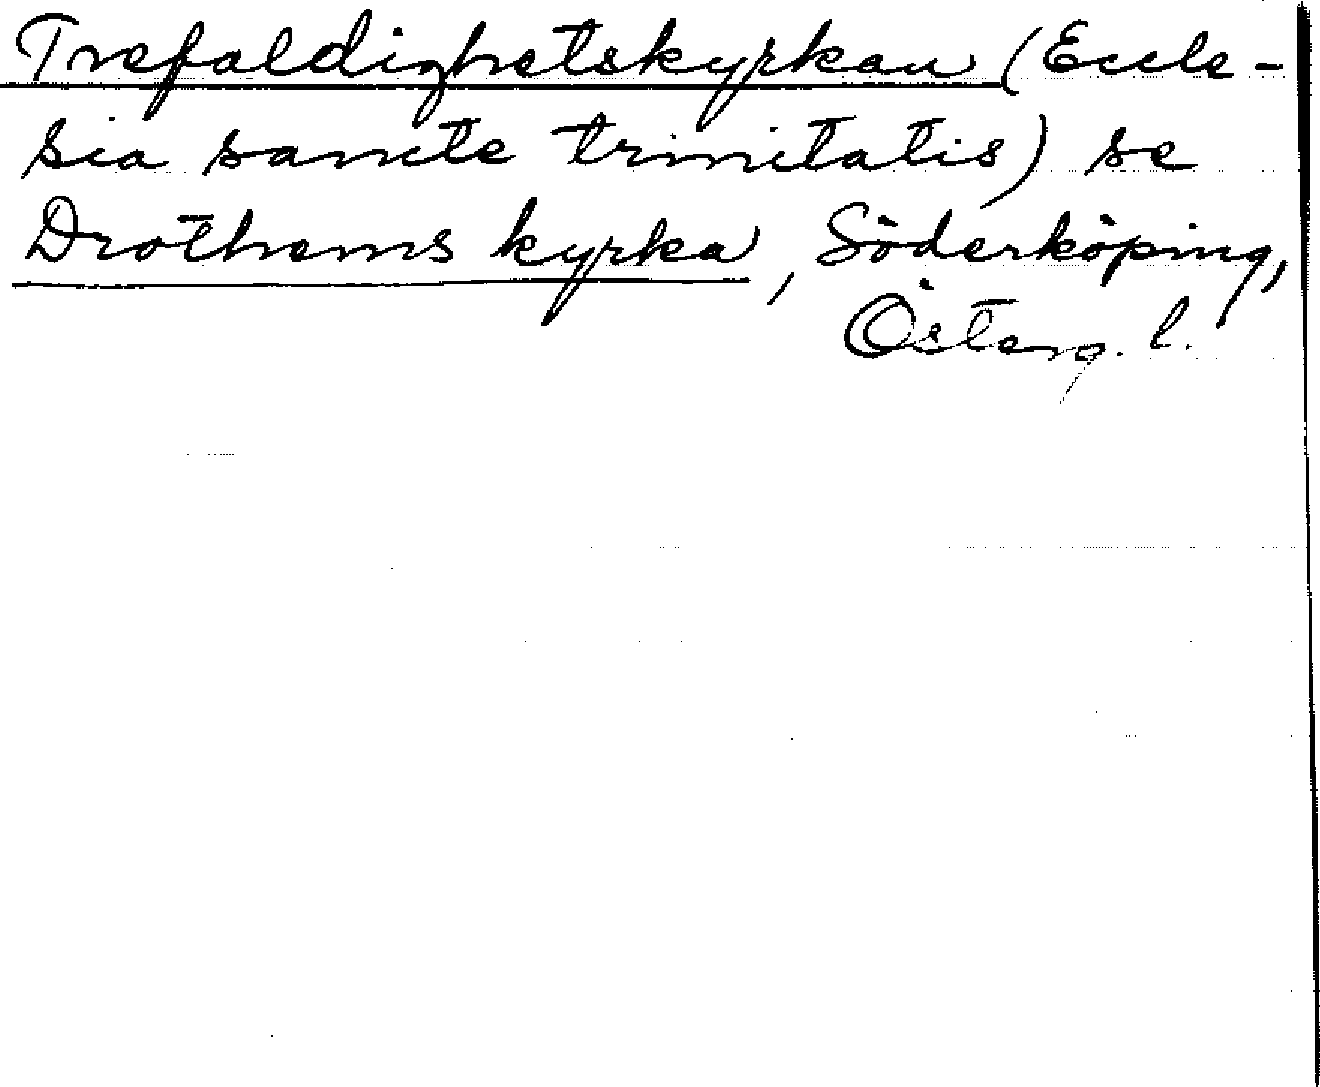 Trefaldighetskyrkan (Eccle-
sia sancte trinitatis) se
Drothems kyrka, Söderköping,
Österg. l.